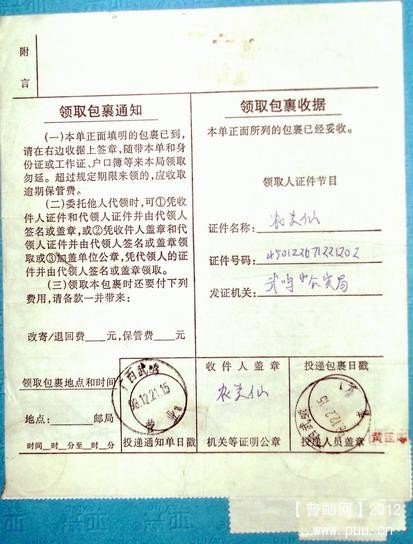 附
言
领取包裹通知
(一)本单正面填明的包裹已到,
请在右边收据上签章,随带本单和身
份证或工作证、户口簿等来本局领取
勿延。超过规定期限来领的,应收取
逾期保管费。
(二)委托他人代领时,可①凭收
件人证件和代领人证件并由代领人
签名或盖章,或②凭收件人盖章和代
领人证件并由代领人签名或盖章领
取或③加盖单位公章,凭代领人的证
件并由代领人签名或盖章领取。
(三)领取本包裹时还要付下列
费用,请备款一并带来:
改寄/退回费__元,保管费__元。
领取包裹地点和时间
地点:____邮局
时间__时__分至__时__分
广西武鸣
98.12.21.15
投递通知单日戳
领取包裹收据
本单正面所列的包裹已经妥收。
领取人证件节目
证件名称:农美仙
证件号码:
发证机关:武鸣县公安局
收件人盖章
农美仙
机关等证明公章
投递包裹日戳
投递人员盖章
【普邮网】2012
www.puu.cn